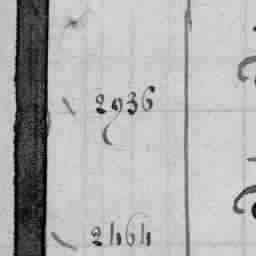 2936
2464